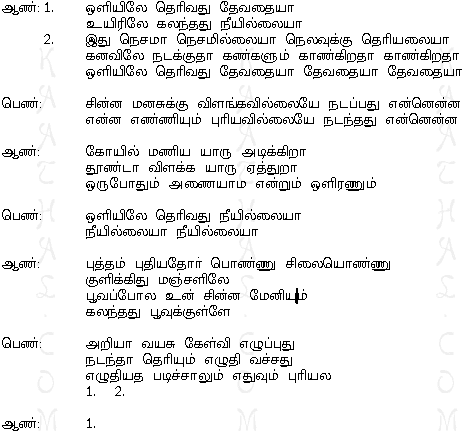 ஆண்: 1. ஒளியிலே தெரிவது தேவதையா
உயிரிலே கலந்தது நீயில்லையா
2. இது நெசமா நெசமில்லையா நெலவுக்கு தெரியலையா
கனவிலே நடக்குதா கண்களும் காண்கிறதா காண்கிறதா
ஒளியிலே தெரிவது தேவதையா தேவதையா தேவதையா
பெண்: சின்ன மனசுக்கு விளங்கவில்லையே நடப்பது என்னென்ன
என்ன எண்ணியும் புரியவில்லையே நடந்தது என்னென்ன
ஆண்: கோயில் மணிய யாரு அடிக்கிறா
தூண்டா விளக்க யாரு ஏத்துறா
ஒருபோதும் அணையாம என்றும் ஒளிரணும்
பெண்: ஒளியிலே தெரிவது நீயில்லையா
நீயில்லையா நீயில்லையா
ஆண்: புத்தம் புதியதோர் பொண்ணு சிலையொண்ணு
குளிக்கிது மஞ்சளிலே
பூவப்போல உன் சின்ன மேனியும்
கலந்தது பூவுக்குள்ளே
பெண்: அறியா வயசு கேள்வி எழுப்புது
நடந்தா தெரியும் எழுதி வச்சது
எழுதியத படிச்சாலும் எதுவும் புரியல
1. 2.
ஆண்: 1.